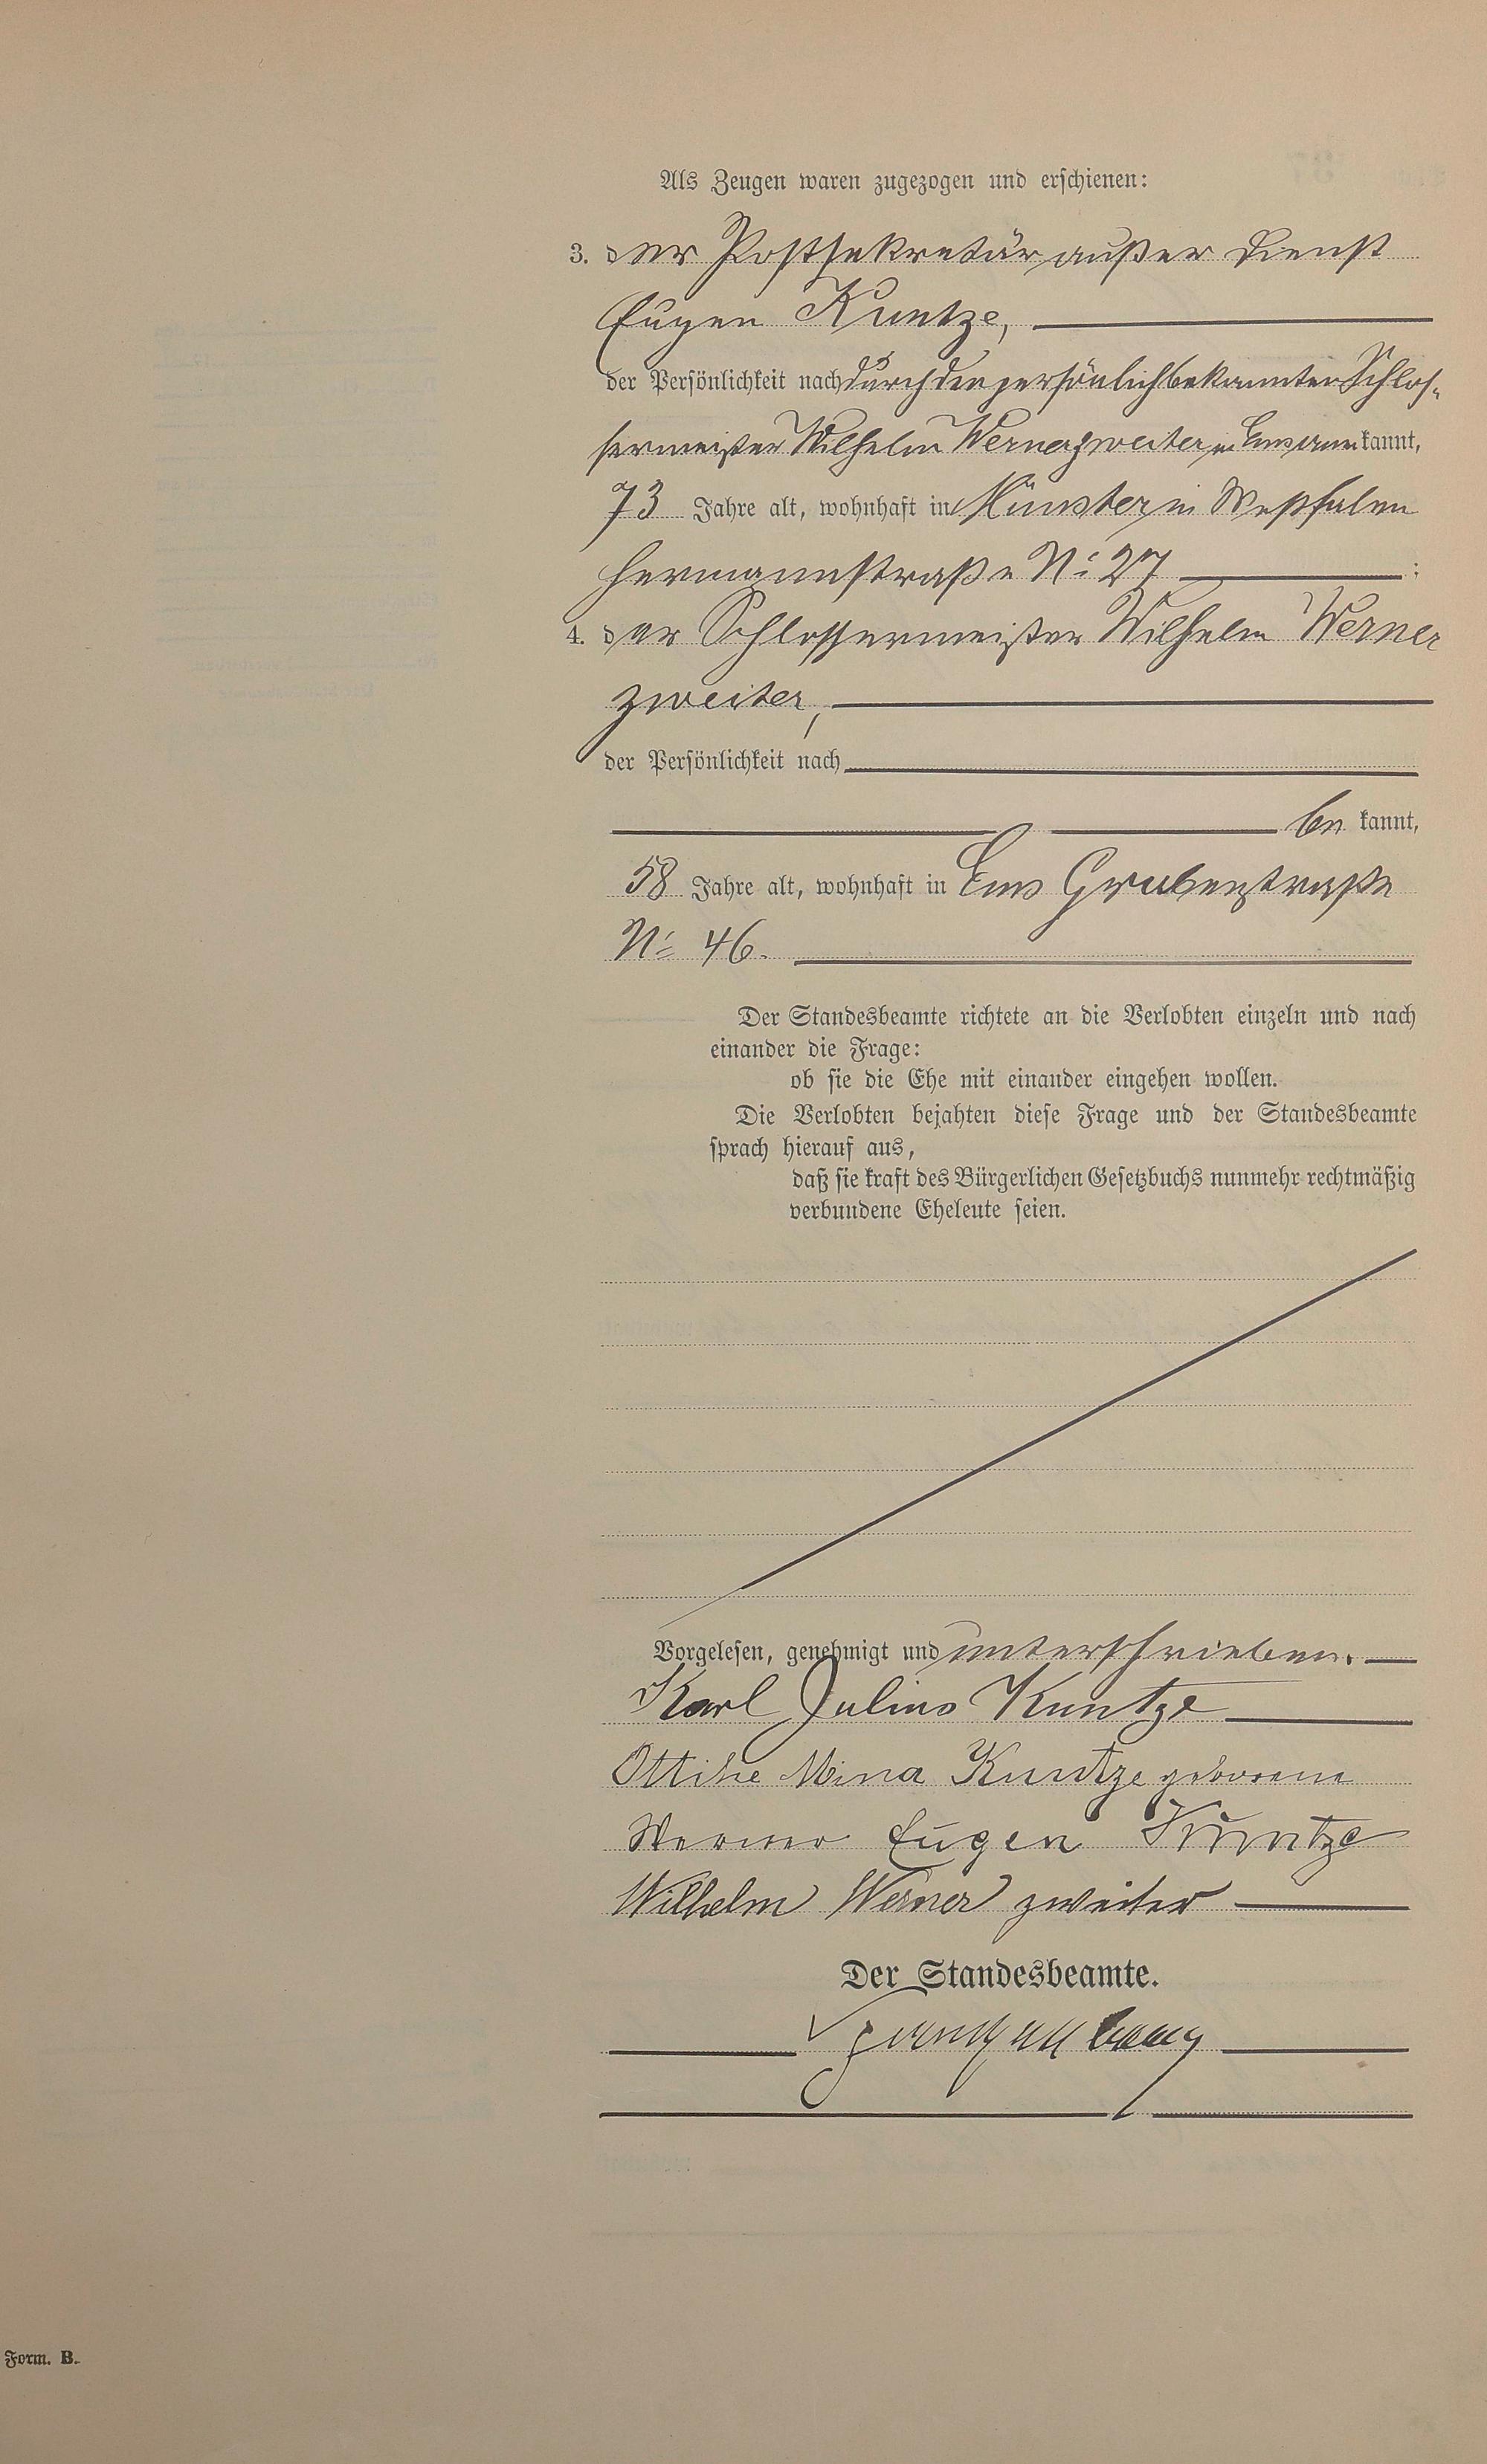 Als Zeugen waren zugezogen und erschienen:
3. der Postsekretär außer Dienst
Eugen Kuntze,
der Persönlichkeit nach durch den persönlich bekannten Schlos-
sermeister Wilhelm Werner zweiter in Ems anerkannt,
73 Jahre alt, wohnhaft in Münster in Westfalen
Hermannstraße No 27 ;
4. der Schlossermeister Wilhelm Werner
zweiter,
der Persönlichkeit nach
be kannt,
58 Jahre alt, wohnhaft in Ems Grabenstraße
No 46.
Der Standesbeamte richtete an die Verlobten einzeln und nach
einander die Frage:
ob sie die Ehe mit einander eingehen wollen.
Die Verlobten bejahten diese Frage und der Standesbeamte
sprach hierauf aus,
daß sie kraft des Bürgerlichen Gesetzbuchs nunmehr rechtmäßig
verbundene Eheleute seien.
Vorgelesen, genehmigt und unterschrieben.
Karl Julius Kuntze
Ottilie Mina Kuntze geborene
Werner Eugen Kuntze
Wilhelm Werner zweiter
Der Standesbeamte.
Form. B.